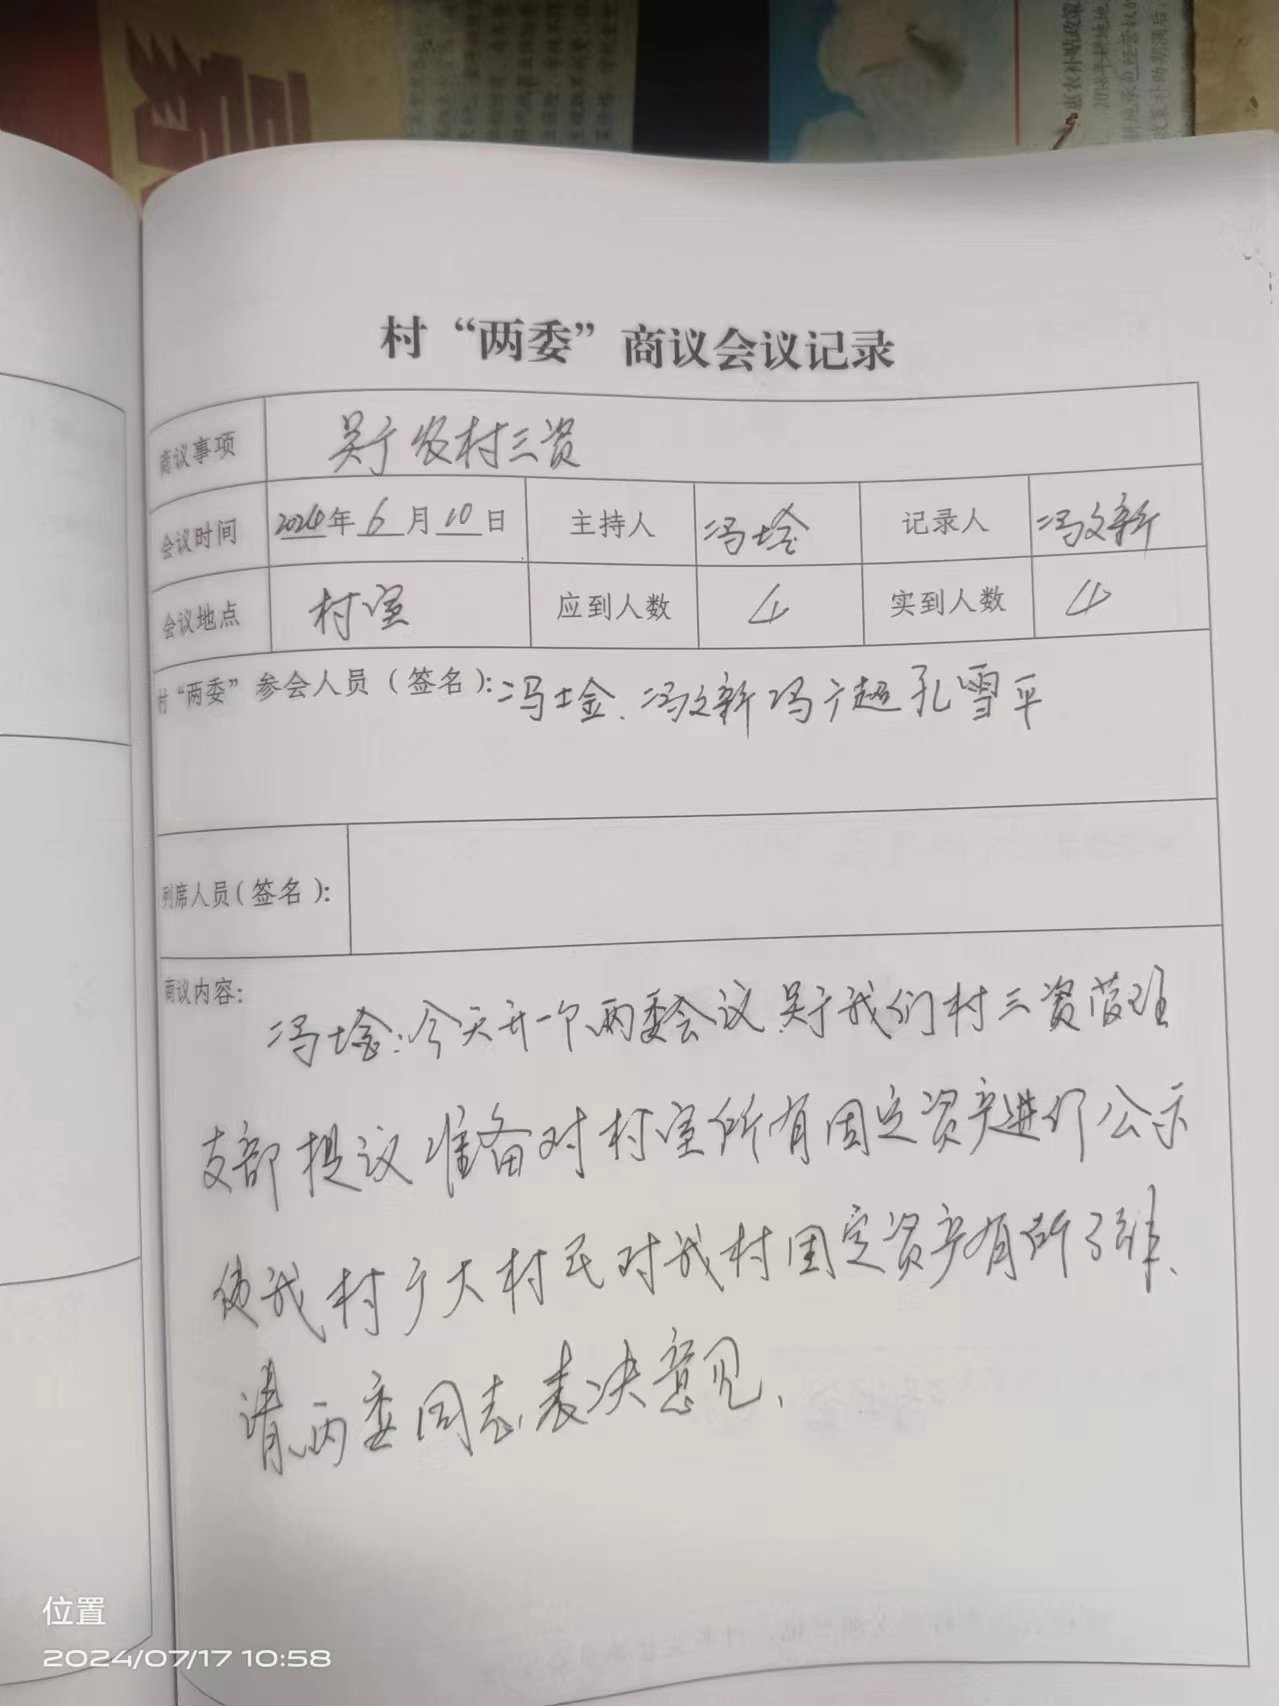 惠农补贴政策
村“两委”商议会议记录
商议事项 关于农村三资
会议时间 2024年6月10日 主持人 冯士金 记录人 冯文新
会议地点 村室 应到人数 4 实到人数 4
村“两委”参会人员（签名）：冯士金、冯文新 冯广超 孔雪平
列席人员（签名）：
商议内容：
冯士金：今天开一个两委会议 关于我们村三资管理
支部提议准备对村室所有固定资产进行公示
使我村广大村民对我村固定资产有所了解、
请两委同志表决意见、
位置
2024/07/17 10:58